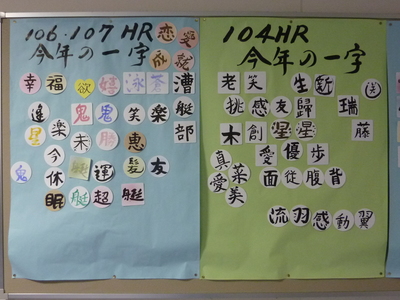 106・107 HR 恋愛
今年の一字 成就
幸福欲嬉泳答漕
逢鬼鬼笑楽艇
星楽未勝恵部
今艇運髪友
鬼休
眠艇超艇
104HR
今年の一字
老笑生新送
挑感友歸瑞
木創星星藤
愛優歩
真菜面従腹背
愛美
流羽感動翼